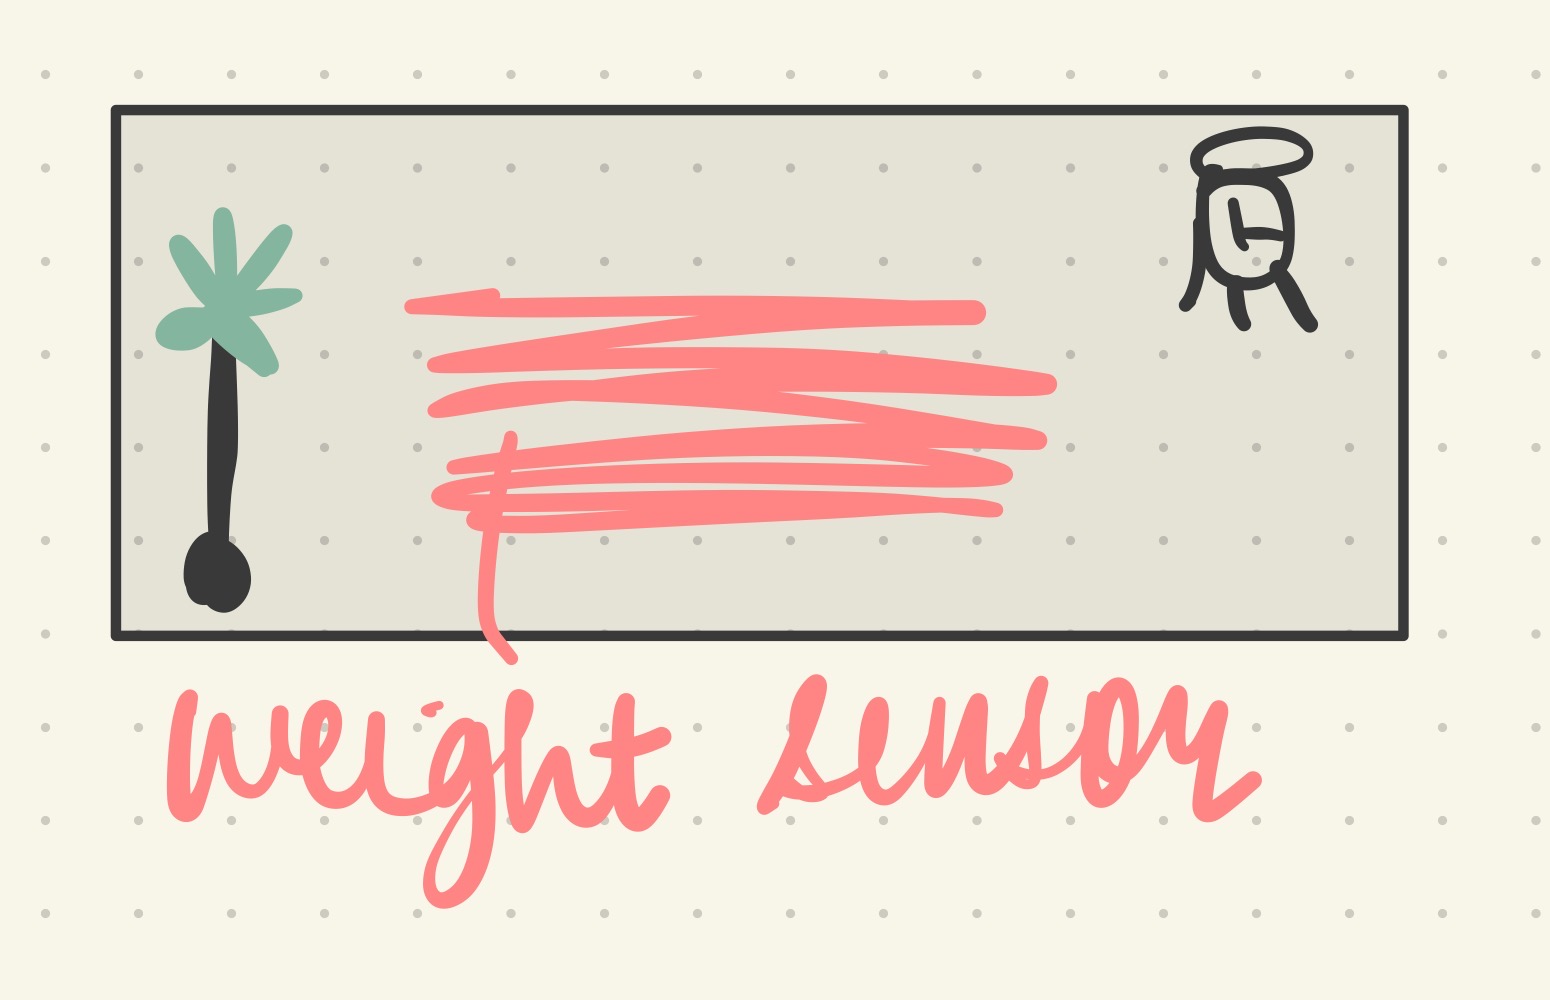 weight sensor